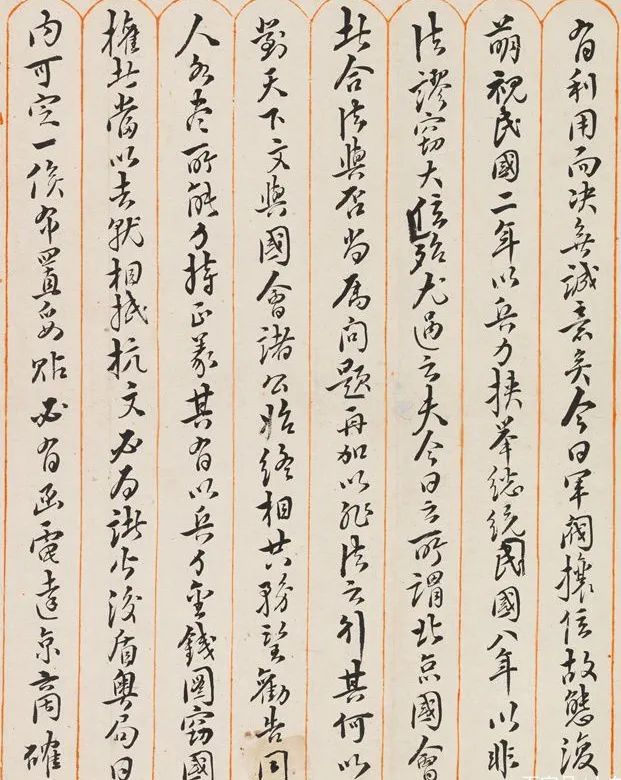 有利用而決無誠意矣今日軍閥攘位故態復
萌視民國二年以兵力挾舉總統民國八年以非
法謬竊大位殆尤過之夫今日之所謂北京國會
其合法與否尚屬問題再加以非法之行其何以
對天下文與國會諸公始終相共務望勸告同
人各盡所能力持正義其有以兵力金錢圖竊國
權者當以去就相抵抗文必為諸公後盾粵局日
內可定一俟布置妥貼必有函電達京商確